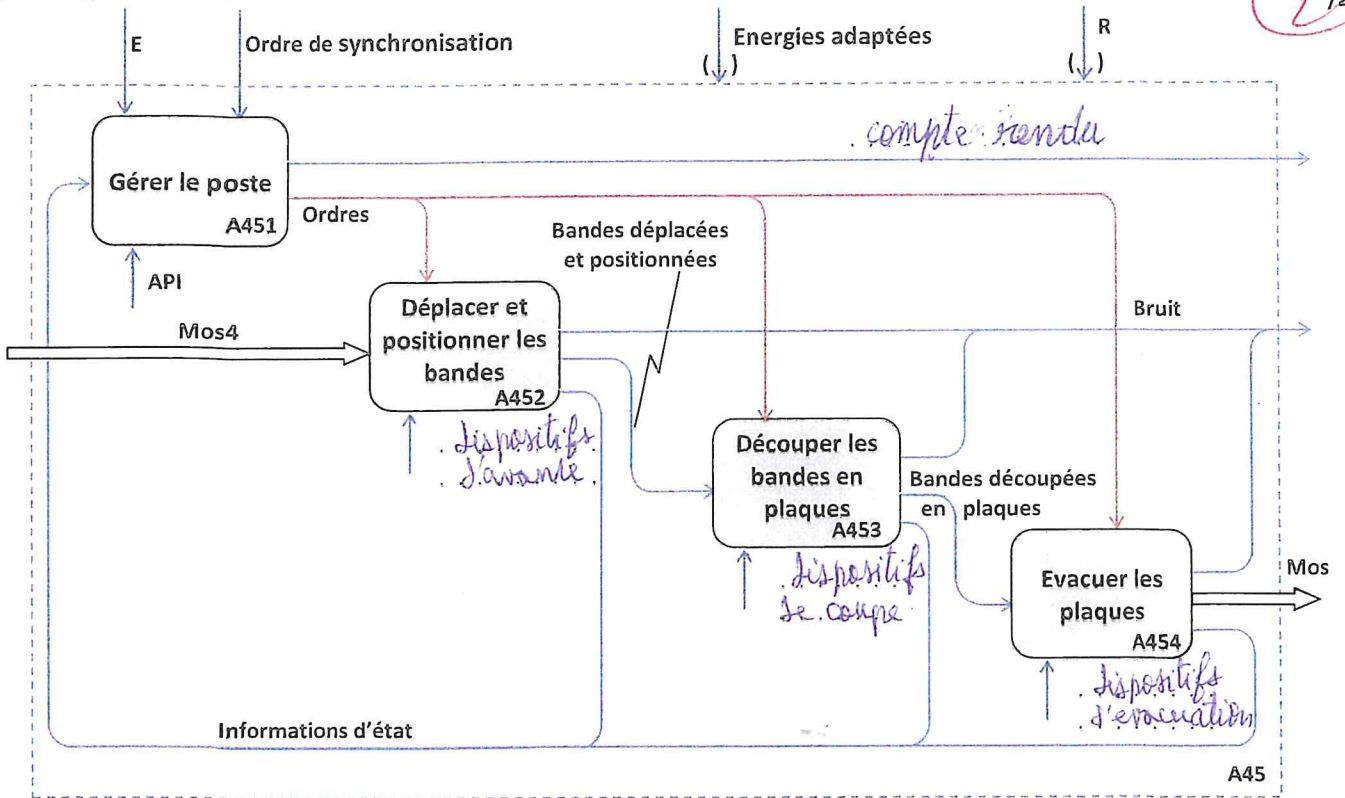 E
Ordre de synchronisation
Energies adaptées
( )
R
( )
compte rendu
Gérer le poste
A451
Ordres
API
Bandes déplacées
et positionnées
Mos4
Déplacer et
positionner les
bandes
A452
Bruit
dispositifs
d'avance
Découper les
bandes en
plaques
A453
Bandes découpées
en plaques
dispositifs
de coupe
Evacuer les
plaques
A454
Mos
dispositifs
d'evacuation
Informations d'état
A45